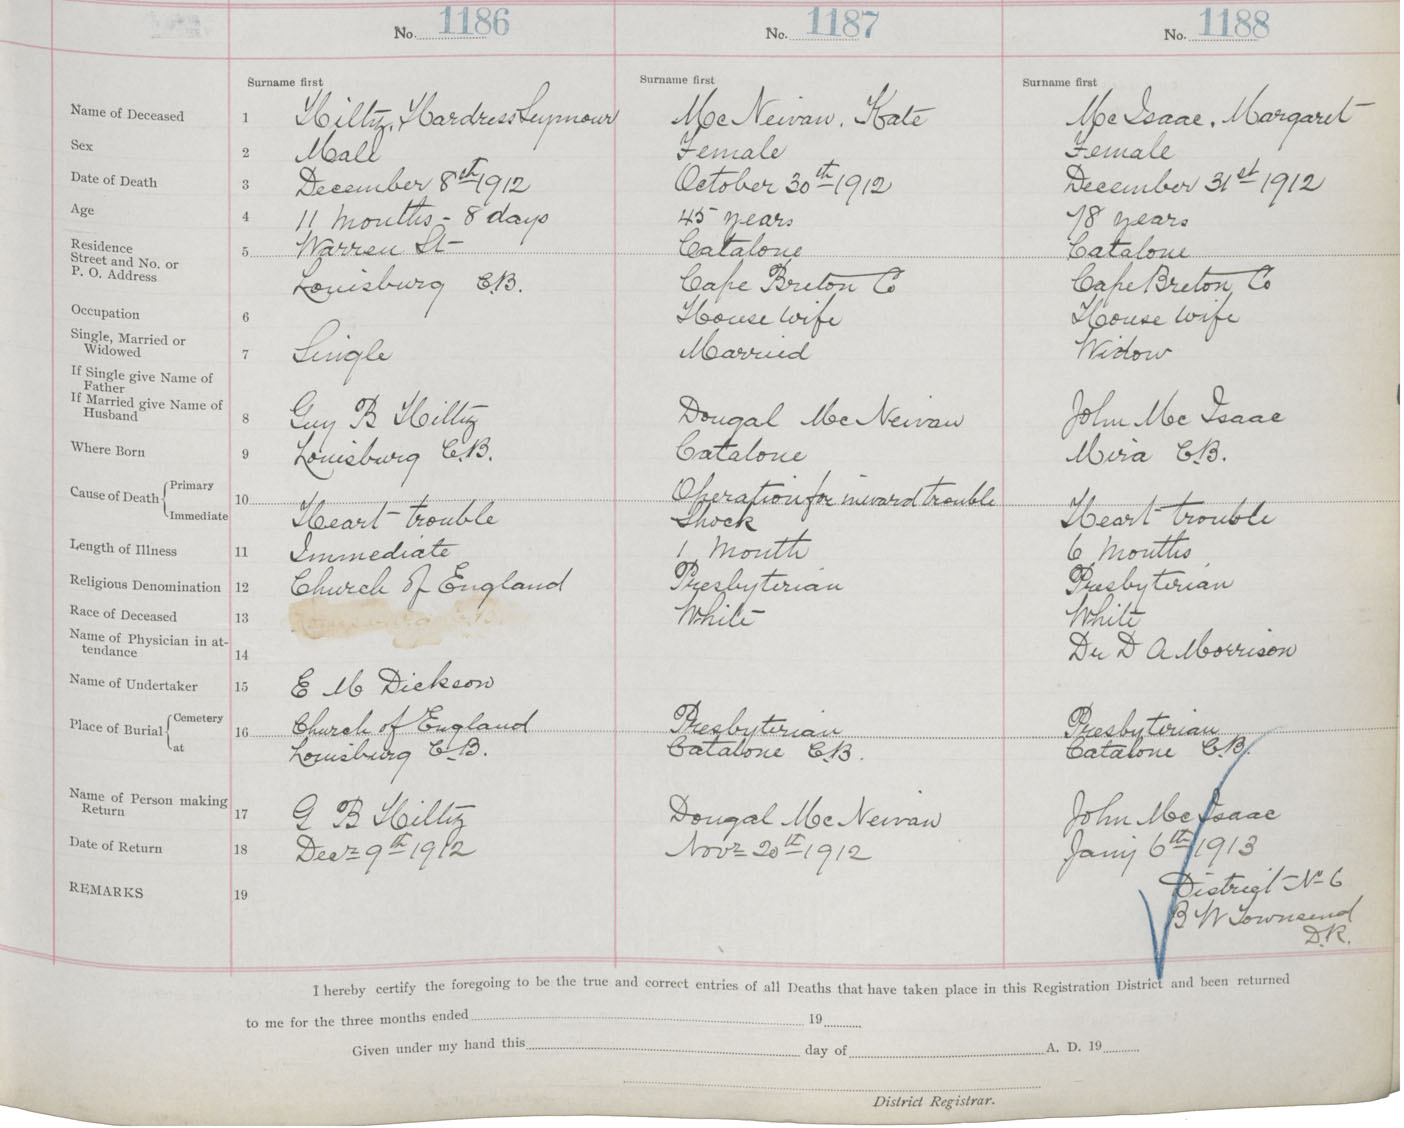 No. 1186 No. 1187 No. 1188
Surname first Surname first Surname first
Name of Deceased 1 Hiltz, Hardress Seymour Mc Neivan, Kate Mc Isaac, Margaret
Sex 2 Male Female Female
Date of Death 3 December 8th 1912 October 30th 1912 December 31st 1912
Age 4 11 months - 8 days 45 years 78 years
Residence 5 Warren St Catalone Catalone
Street and No. or
P. O. Address Louisburg C.B. Cape Breton Co Cape Breton Co
Occupation 6 House wife House wife
Single, Married or
Widowed 7 Single Married Widow
If Single give Name of
Father
If Married give Name of
Husband 8 Guy B Hiltz Dougal Mc Neivan John Mc Isaac
Where Born 9 Louisburg C.B. Catalone Mira C.B.
Cause of Death { Primary 10 Operation for inward trouble
Immediate Heart trouble Shock Heart trouble
Length of Illness 11 Immediate 1 Month 6 Months
Religious Denomination 12 Church of England Presbyterian Presbyterian
Race of Deceased 13 White White
Name of Physician in at-
tendance 14 Dr D A Morrison
Name of Undertaker 15 E M Dickson
Place of Burial { Cemetery 16 Church of England Presbyterian Presbyterian
at Louisburg C.B. Catalone C.B. Catalone C.B.
Name of Person making
Return 17 G B Hiltz Dougal Mc Neivan John Mc Isaac
Date of Return 18 Decr 9th 1912 Novr 20th 1912 Jany 6th 1913
REMARKS 19 District No 6
B W Townsend
D.R.
I hereby certify the foregoing to be the true and correct entries of all Deaths that have taken place in this Registration District and been returned
to me for the three months ended 19
Given under my hand this day of A. D. 19
District Registrar.